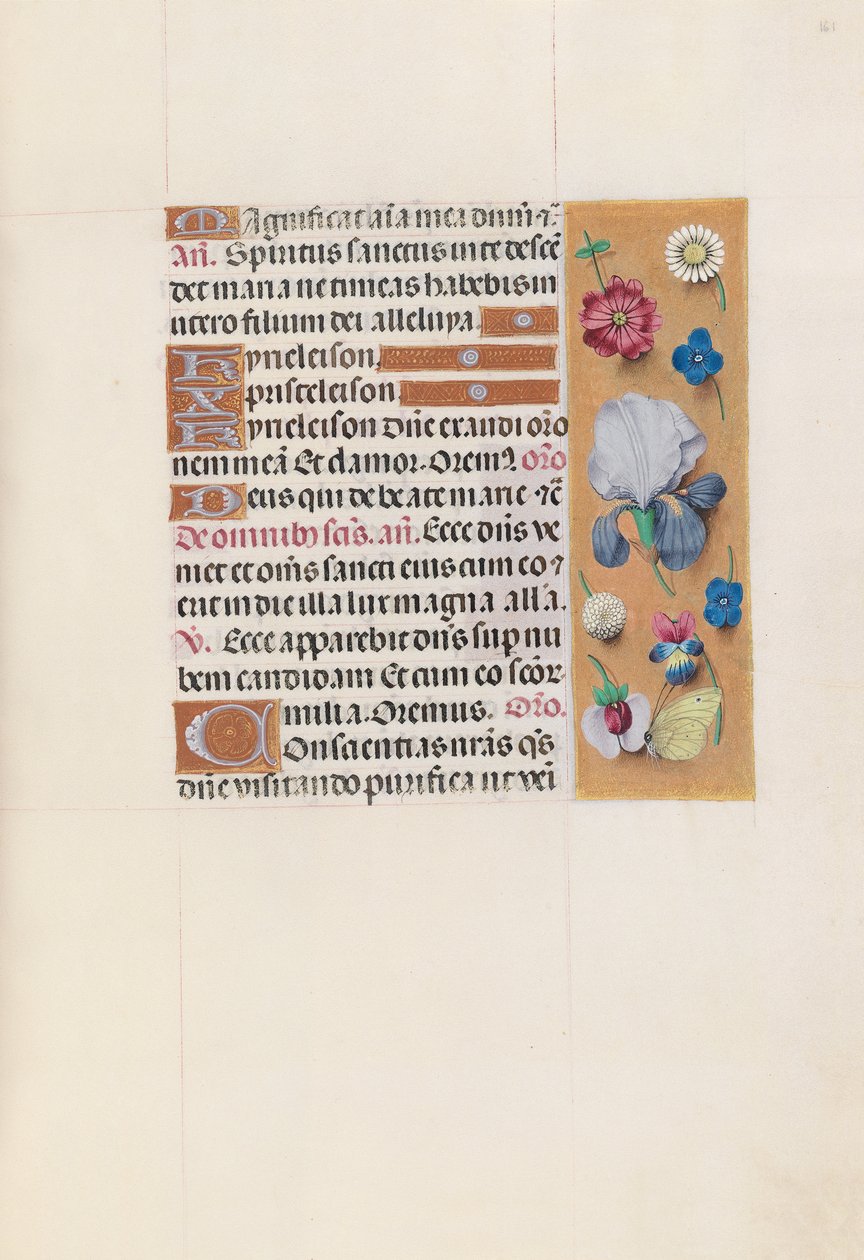 161
Magnificat aīa mea dominū ⁊c̄
Añ. Spiritus sanctus in te descē
det maria ne timeas habebis in
utero filium dei alleluya.
Kyrieleison
Xpristeleison
Kyrieleison Dñe exaudi oro
nem meā Et clamor. Orem⁹. Oro
Deus qui de beate marie ⁊c̄
De omnibꝫ scīs. añ. Ecce dñs ve
niet et oñis sancti eius cum eo ⁊
erit in die illa lux magna all'a.
℣. Ecce apparebit dñs sup nu
bem candidam Et cum eo scōr
milia. Oremus. Oro.
Conscientias nrās q̄s
dñe visitando purifica ut veī